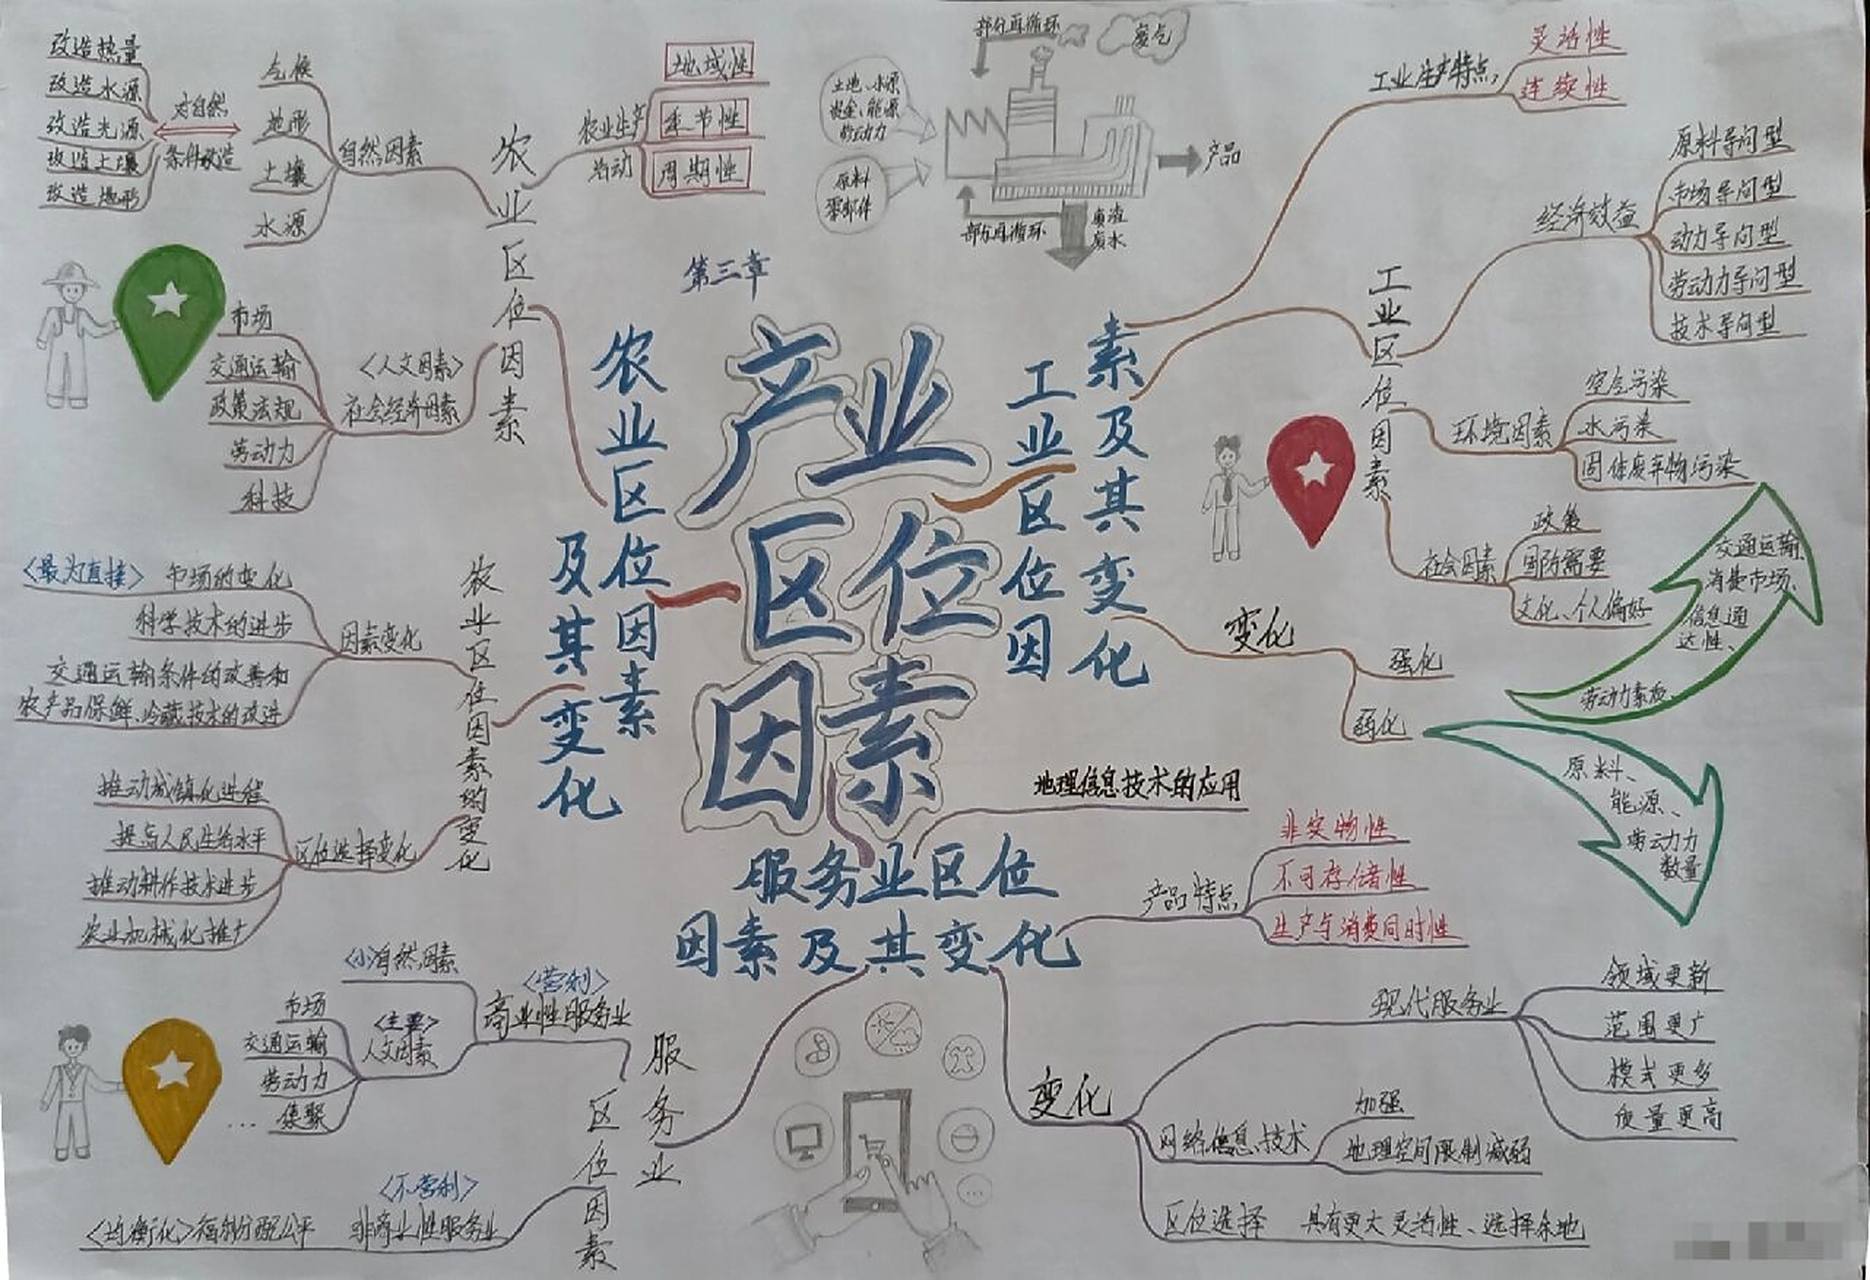 第三章
产业
区位
因素
农业区位因素
及其变化
农业区位因素
农业生产
活动
地域性
季节性
周期性
自然因素
气候
地形
土壤
水源
对自然
条件改造
改造热量
改造水源
改造光源
改造土壤
改造地形
<人文因素>
社会经济因素
市场
交通运输
政策法规
劳动力
科技
农业区位因素的变化
因素变化
<最为直接> 市场的变化
科学技术的进步
交通运输条件的改善和
农产品保鲜、冷藏技术的改进
区位选择变化
推动城镇化进程
提高人民生活水平
推动耕作技术进步
农业机械化推广
工业区位因
素及其变化
部分再循环
废气
土地、水源
资金、能源
劳动力
原料
零部件
产品
部分再循环
废渣
废水
工业生产特点
灵活性
连续性
工业区位因素
经济效益
原料导向型
市场导向型
动力导向型
劳动力导向型
技术导向型
环境因素
空气污染
水污染
固体废弃物污染
社会因素
政策
国防需要
文化、个人偏好
变化
强化
弱化
交通运输、
消费市场、
信息通
达性、
劳动力素质
原料、
能源、
劳动力
数量
服务业区位
因素及其变化
地理信息技术的应用
产品特点
非实物性
不可存储性
生产与消费同时性
服务业
区位因素
<营利>
商业性服务业
<小>自然因素
<主要>
人文因素
市场
交通运输
劳动力
... 集聚
<不营利>
非商业性服务业
<均衡化>福利分配公平
变化
现代服务业
领域更新
范围更广
模式更多
质量更高
网络信息技术
加强
地理空间限制减弱
区位选择 具有更大灵活性、选择余地